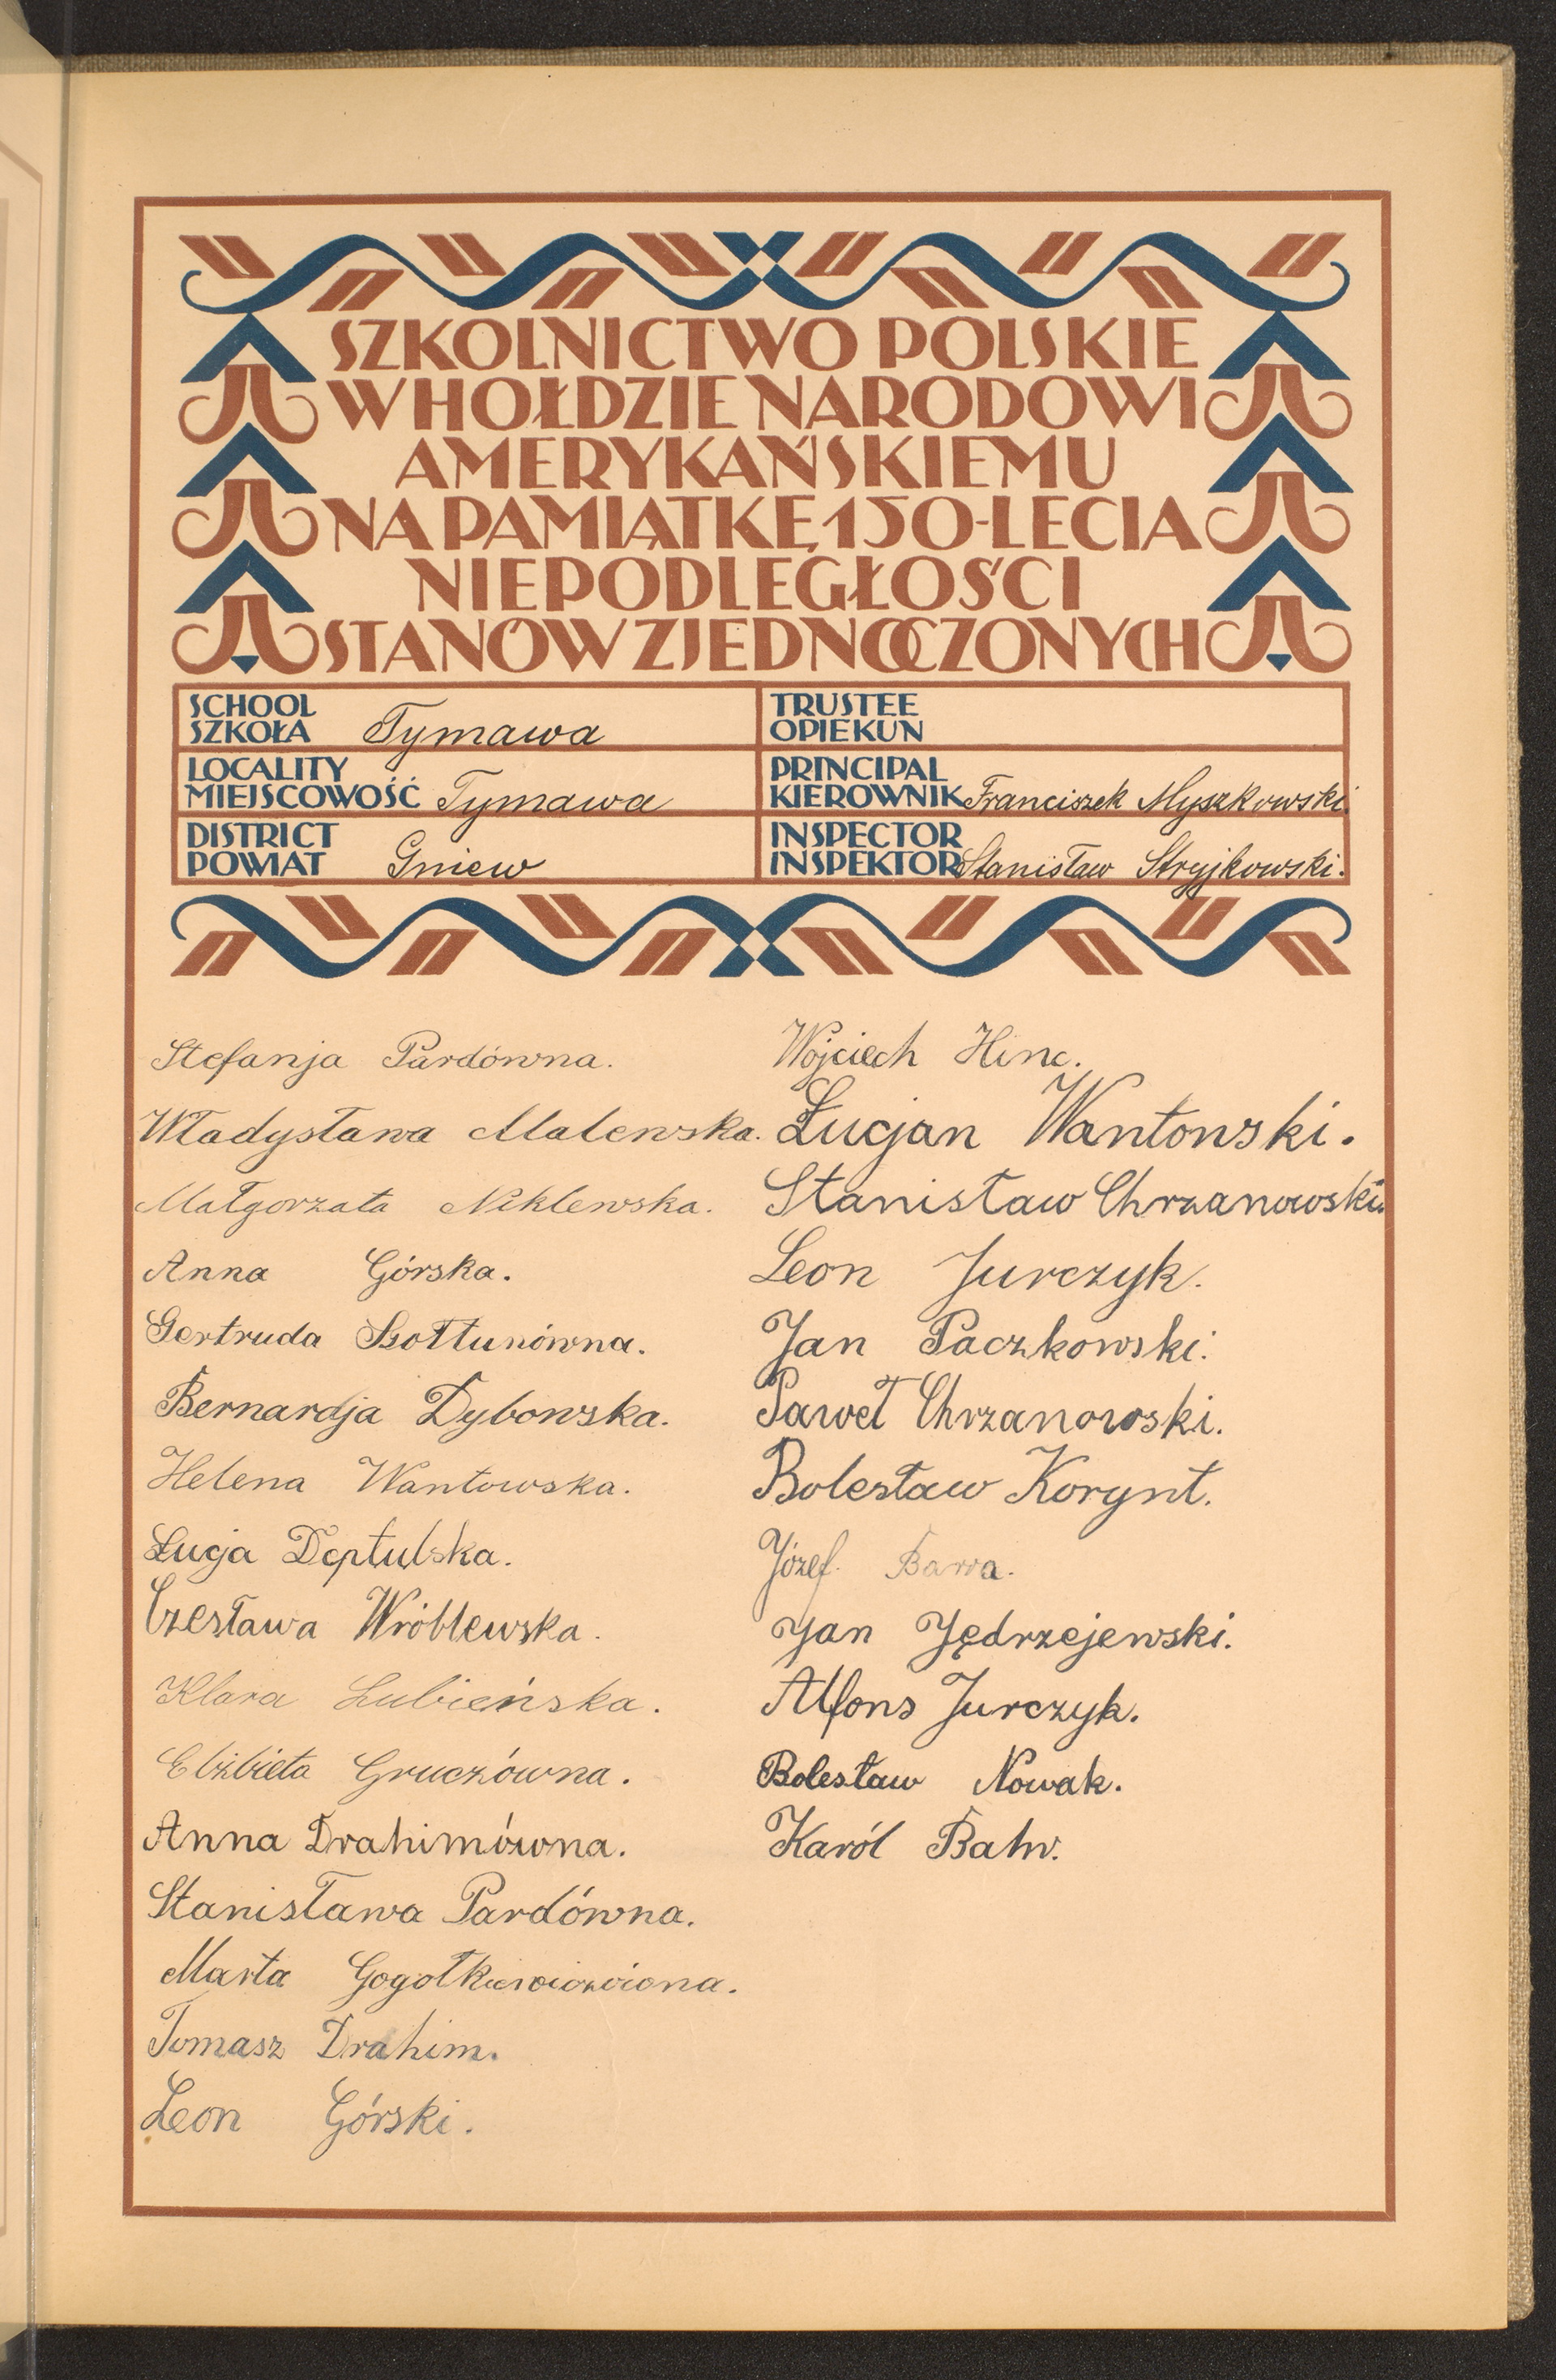 SZKOLNICTWO POLSKIE
W HOŁDZIE NARODOWI
AMERYKAŃSKIEMU
NA PAMIĄTKĘ 150-LECIA
NIEPODLEGŁOŚCI
STANÓW ZJEDNOCZONYCH
SCHOOL
SZKOŁA Tymawa
TRUSTEE
OPIEKUN
LOCALITY
MIEJSCOWOŚĆ Tymawa
PRINCIPAL
KIEROWNIK Franciszek Myszkowski.
DISTRICT
POWIAT Gniew
INSPECTOR
INSPEKTOR Stanisław Stryjkowski.
Stefanja Pardówna.
Władysława Malewska.
Małgorzata Niklewska.
Anna Górska.
Gertruda Szołtunówna.
Bernardja Dybowska.
Helena Wantowska.
Łucja Deptulska.
Czesława Wróblewska.
Klara Lubieńska.
Elżbieta Gruczówna.
Anna Drahimówna.
Stanisława Pardówna.
Marta
Tomasz Drahim.
Leon Górski.
Wojciech Hinc.
Łucjan Wantowski.
Stanisław Chrzanowski.
Leon Jurczyk.
Jan Paczkowski.
Paweł Chrzanowski.
Bolesław Korynt.
Józef Barra.
Jan Jędrzejewski.
Alfons Jurczyk.
Bolesław Nowak.
Karól Bahr.